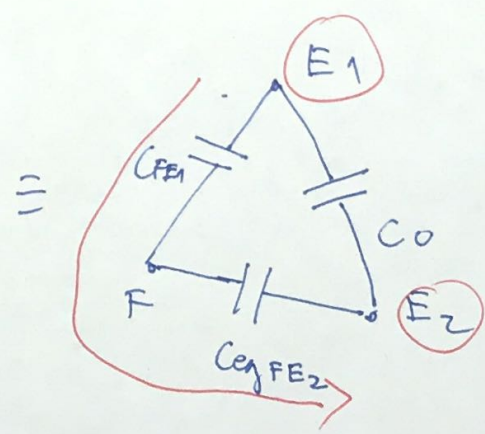 E1
CFE1
≡
C0
F
E2
Ceq FE2